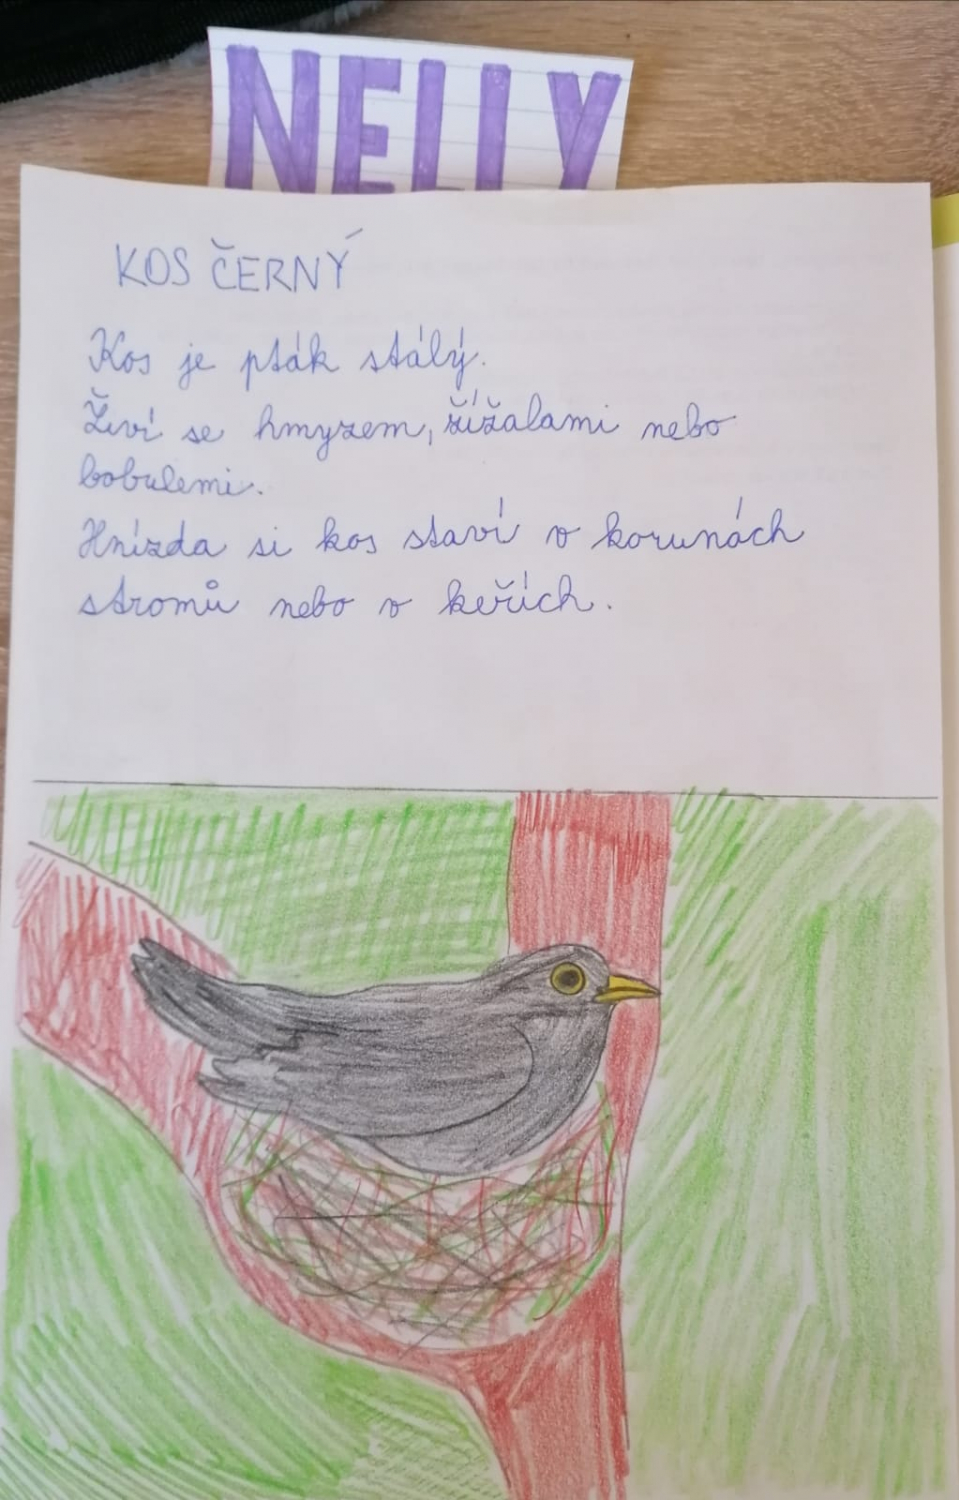 NELLY
KOS ČERNÝ
Kos je pták stálý.
Živí se hmyzem, žížalami nebo
bobulemi.
Hnízda si kos staví v korunách
stromů nebo v keřích.